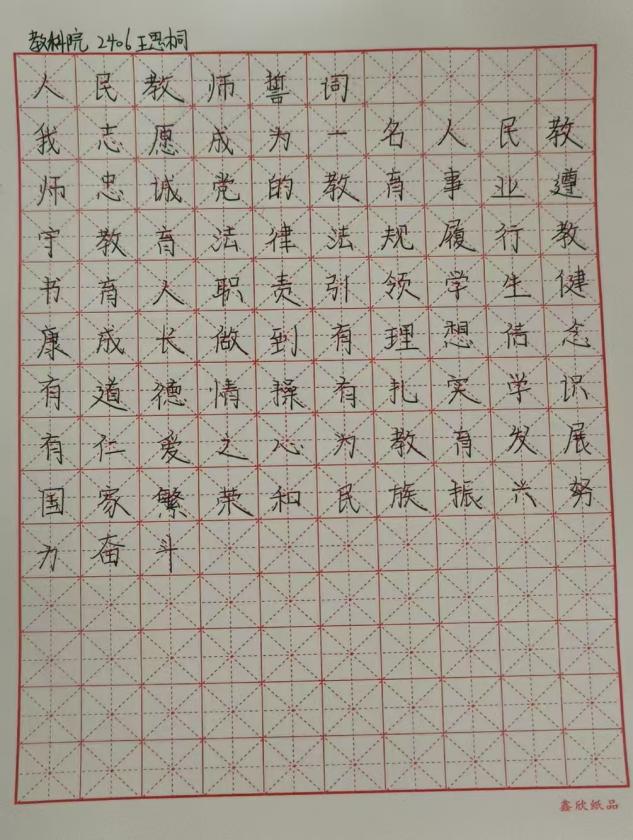 教科院 2406 王思桐
人民教师誓词
我志愿成为一名人民教
师忠诚党的教育事业遵
守教育法律法规履行教
书育人职责引领学生健
康成长做到有理想信念
有道德情操有扎实学识
有仁爱之心为教育发展
国家繁荣和民族振兴努
力奋斗
鑫欣纸品